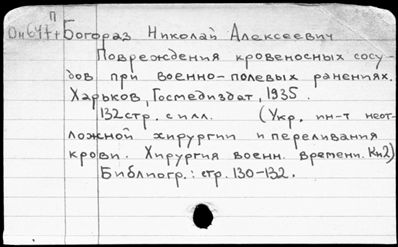 П
Он647т Богораз Николай Алексеевич
Повреждения кровеносных сосу-
дов при военно-полевых ранениях.
Харьков, Госмедиздат, 1935.
132 стр. с илл. (Укр. ин-т неот-
ложной хирургии и переливания
крови. Хирургия военн. времени. Кн2)
Библиогр.: стр. 130-132.